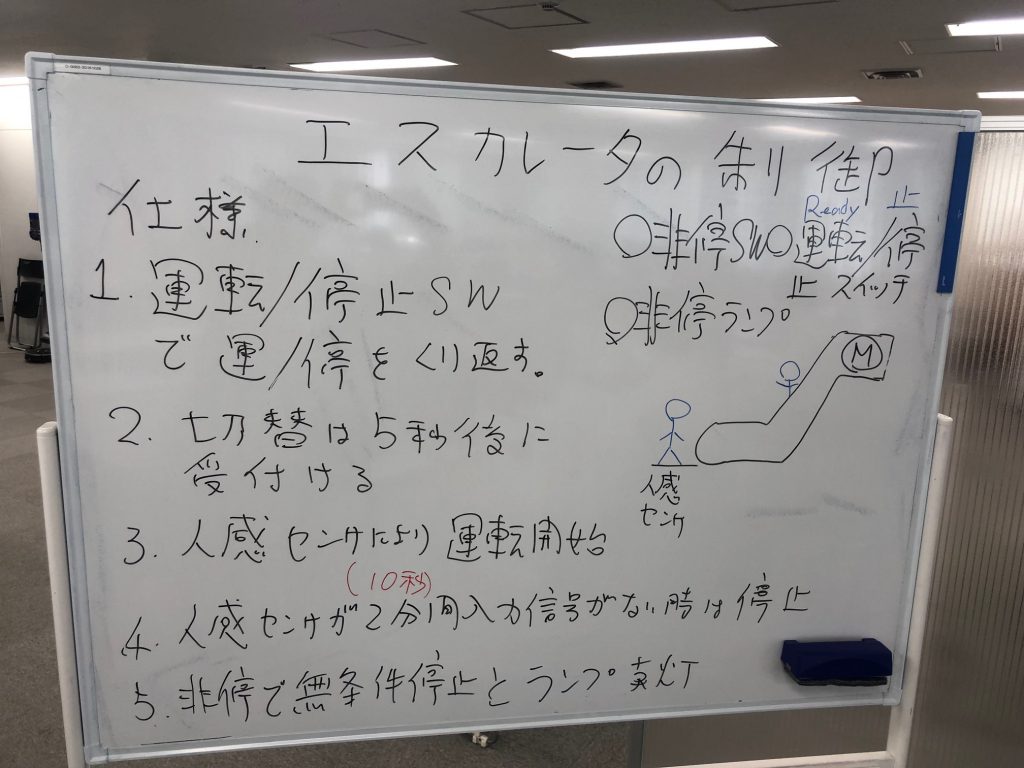 エスカレータの制御
仕様
1. 運転/停止SW
で運/停をくり返す。
2. 切替は5秒後に
受付ける
3. 人感センサにより運転開始
(10秒)
4. 人感センサが2分間入力信号がない時は停止
5. 非停で無条件停止とランプ点灯
Ready 止
○非停SW○運転/停
止スイッチ
○非停ランプ
M
人感
センサ